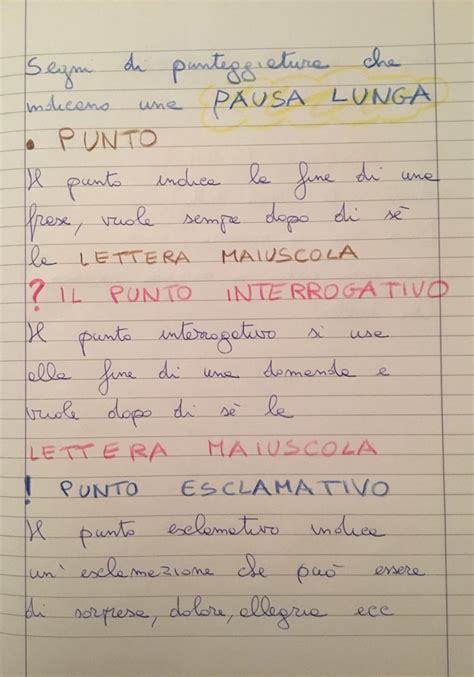 Segni di punteggiatura che
indicano una PAUSA LUNGA
• PUNTO
Il punto indica la fine di una
frase, vuole sempre dopo di sè
la LETTERA MAIUSCOLA
? IL PUNTO INTERROGATIVO
Il punto interrogativo si usa
alla fine di una domanda e
vuole dopo di sè la
LETTERA MAIUSCOLA
! PUNTO ESCLAMATIVO
Il punto esclamativo indica
un' esclamazione che può essere
di sorpresa, dolore, allegria ecc